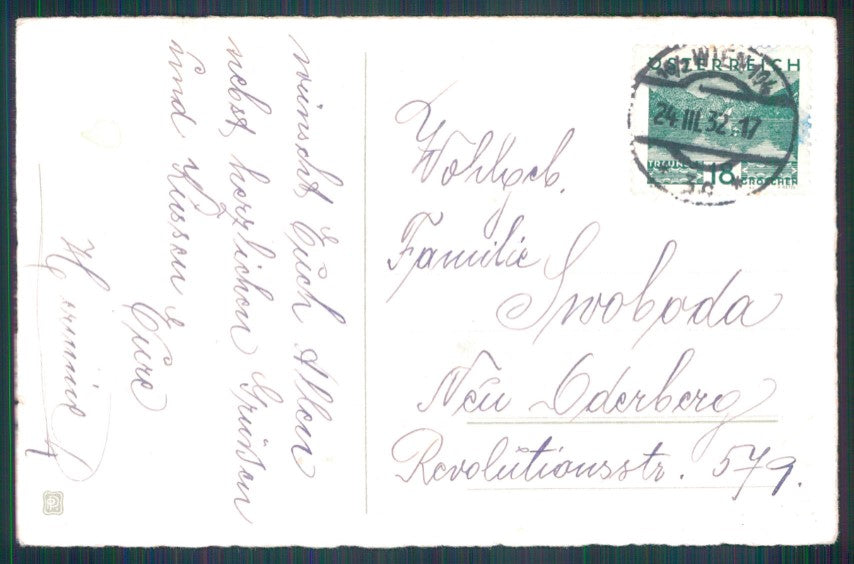 wünscht Euch Allen
nebst herzlichen Grüßen
und Küssen
Eure
Hermine
ÖSTERREICH
WIEN
24.III.32.17
18
GROSCHEN
Wohlgeb.
Familie
Swoboda
Neu Oderberg
Revolutionsstr. 579.